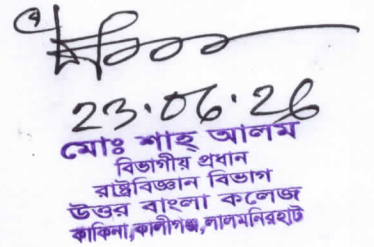 23.06.26
মোঃ শাহ্ আলম
বিভাগীয় প্রধান
রাষ্ট্রবিজ্ঞান বিভাগ
উত্তর বাংলা কলেজ
কাকিনা,কালীগঞ্জ,লালমনিরহাট